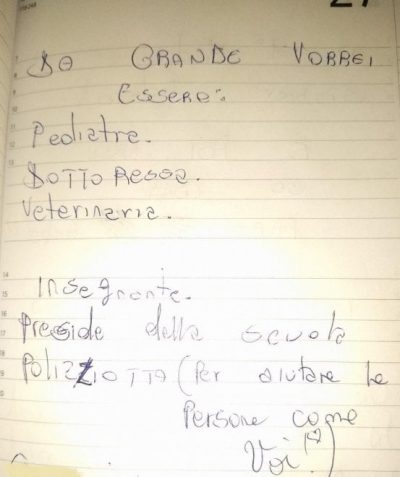 27
DA GRANDE VORREI
Essere:
Pediatra.
DOTTORESSA.
Veterinaria.
Insegnante.
Preside della scuola
POLIZZIOTTA (Per aiutare le
Persone come
Voi!)